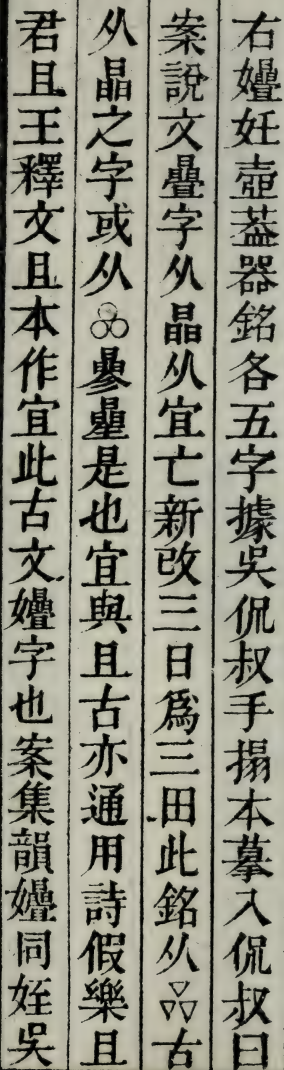 右㜼妊壺葢器銘各五字據吳侃叔手搨本摹入侃叔曰
案說文曡字从晶从宜亡新改三日爲三田此銘从古
从晶之字或从曑曐是也宜與且古亦通用詩假樂且
君且王釋文且本作宜此古文㜼字也案集韻㜼同姪吳